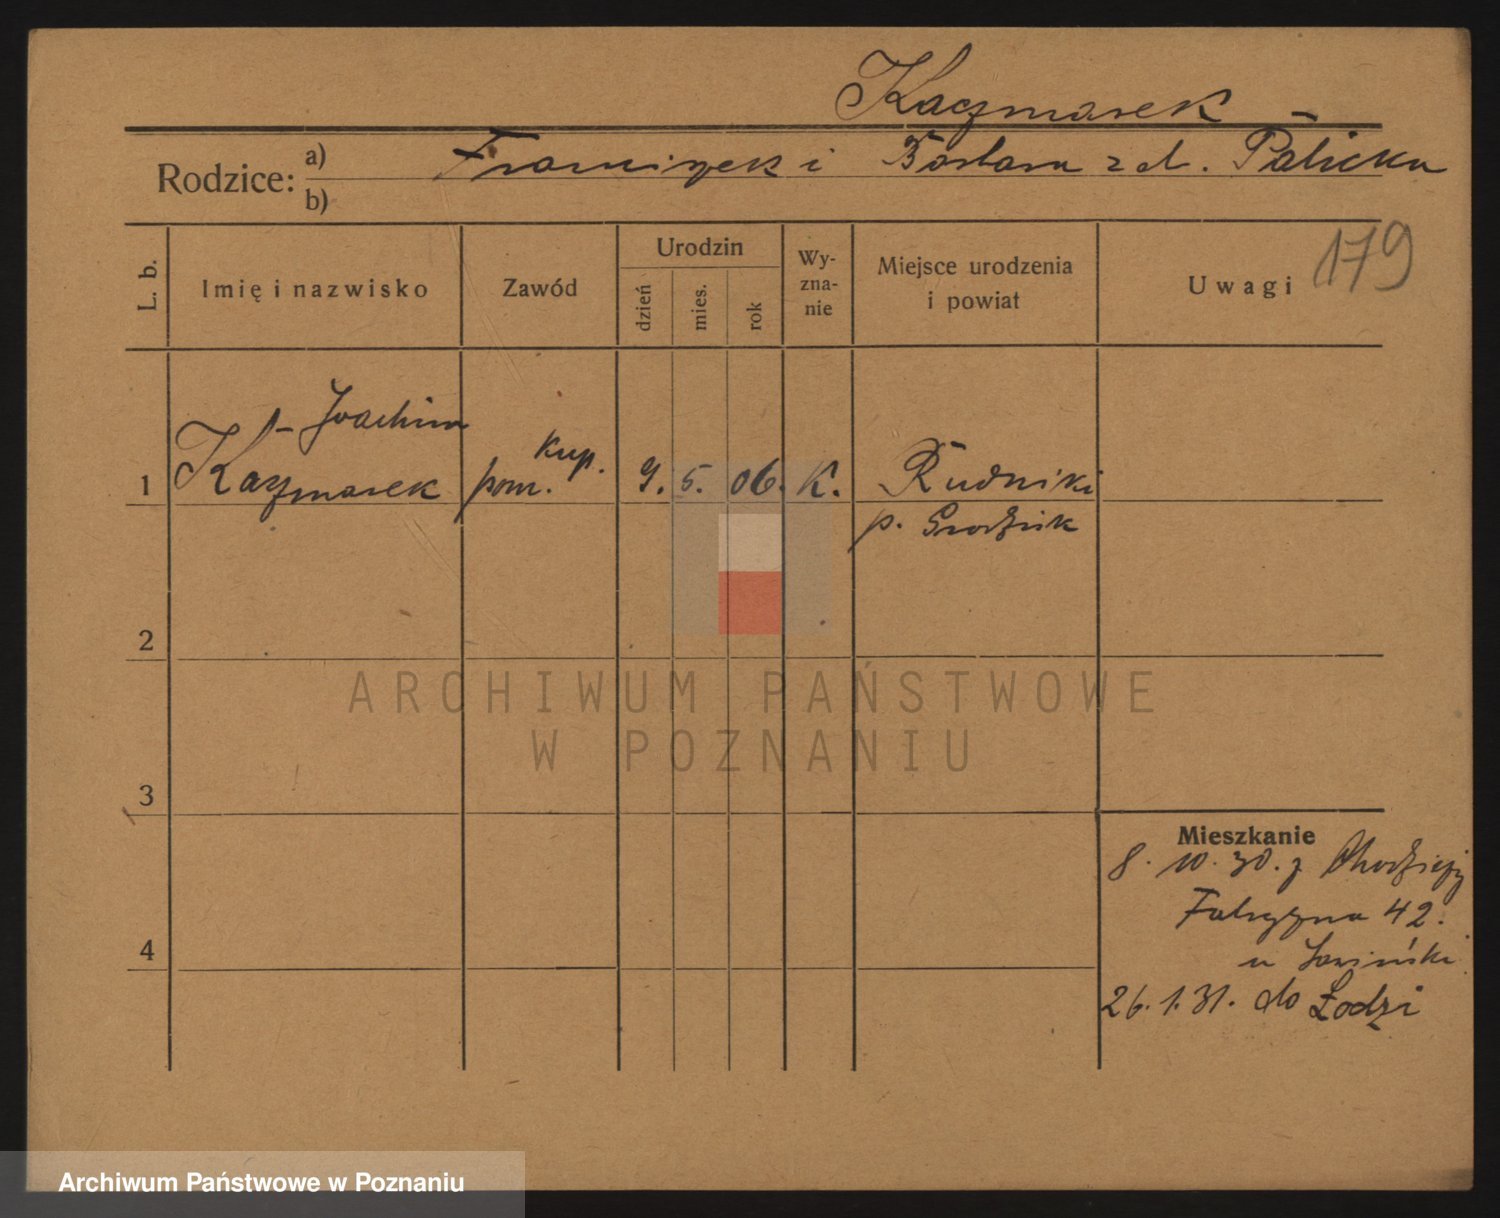 Kaczmarek
Rodzice: a) Franciszek i Barbara z d. Palicka
b)
L. b.
Imię i nazwisko
Zawód
Urodzin
dzień
mies.
rok
Wy-
zna-
nie
Miejsce urodzenia
i powiat
Uwagi
179
Joachim
1 Kaczmarek
kup.
pom.
9. 5. 06. K. Rudniki
p. Grodzisk
2
3
4
Mieszkanie
8. 10. 30. z Chodzieży
Fabryczna 42.
u
26. 1. 31. do Łodzi
ARCHIWUM PAŃSTWOWE
W POZNANIU
Archiwum Państwowe w Poznaniu